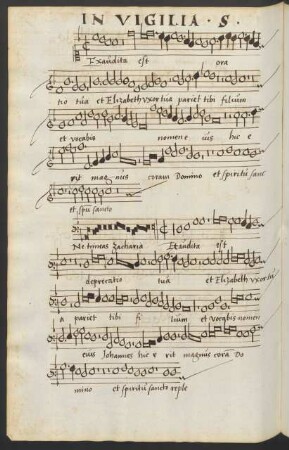 IN VIGILIA · S ·
Exaudita est ora
tio tua et Elizabeth vxor tua pariet tibi filium
et vocabis nomen e ius hic e
rit mag nus coram Domino et spiritu sanc
et spu sancto
Ne timeas Zacharia Exaudita est
deprecatio tua et Elizabeth vxor tu
a pariet tibi fi lium et vocabis nomen
eius Johannes hic e rit magnus corā Do
mino et spiritu sancto reple